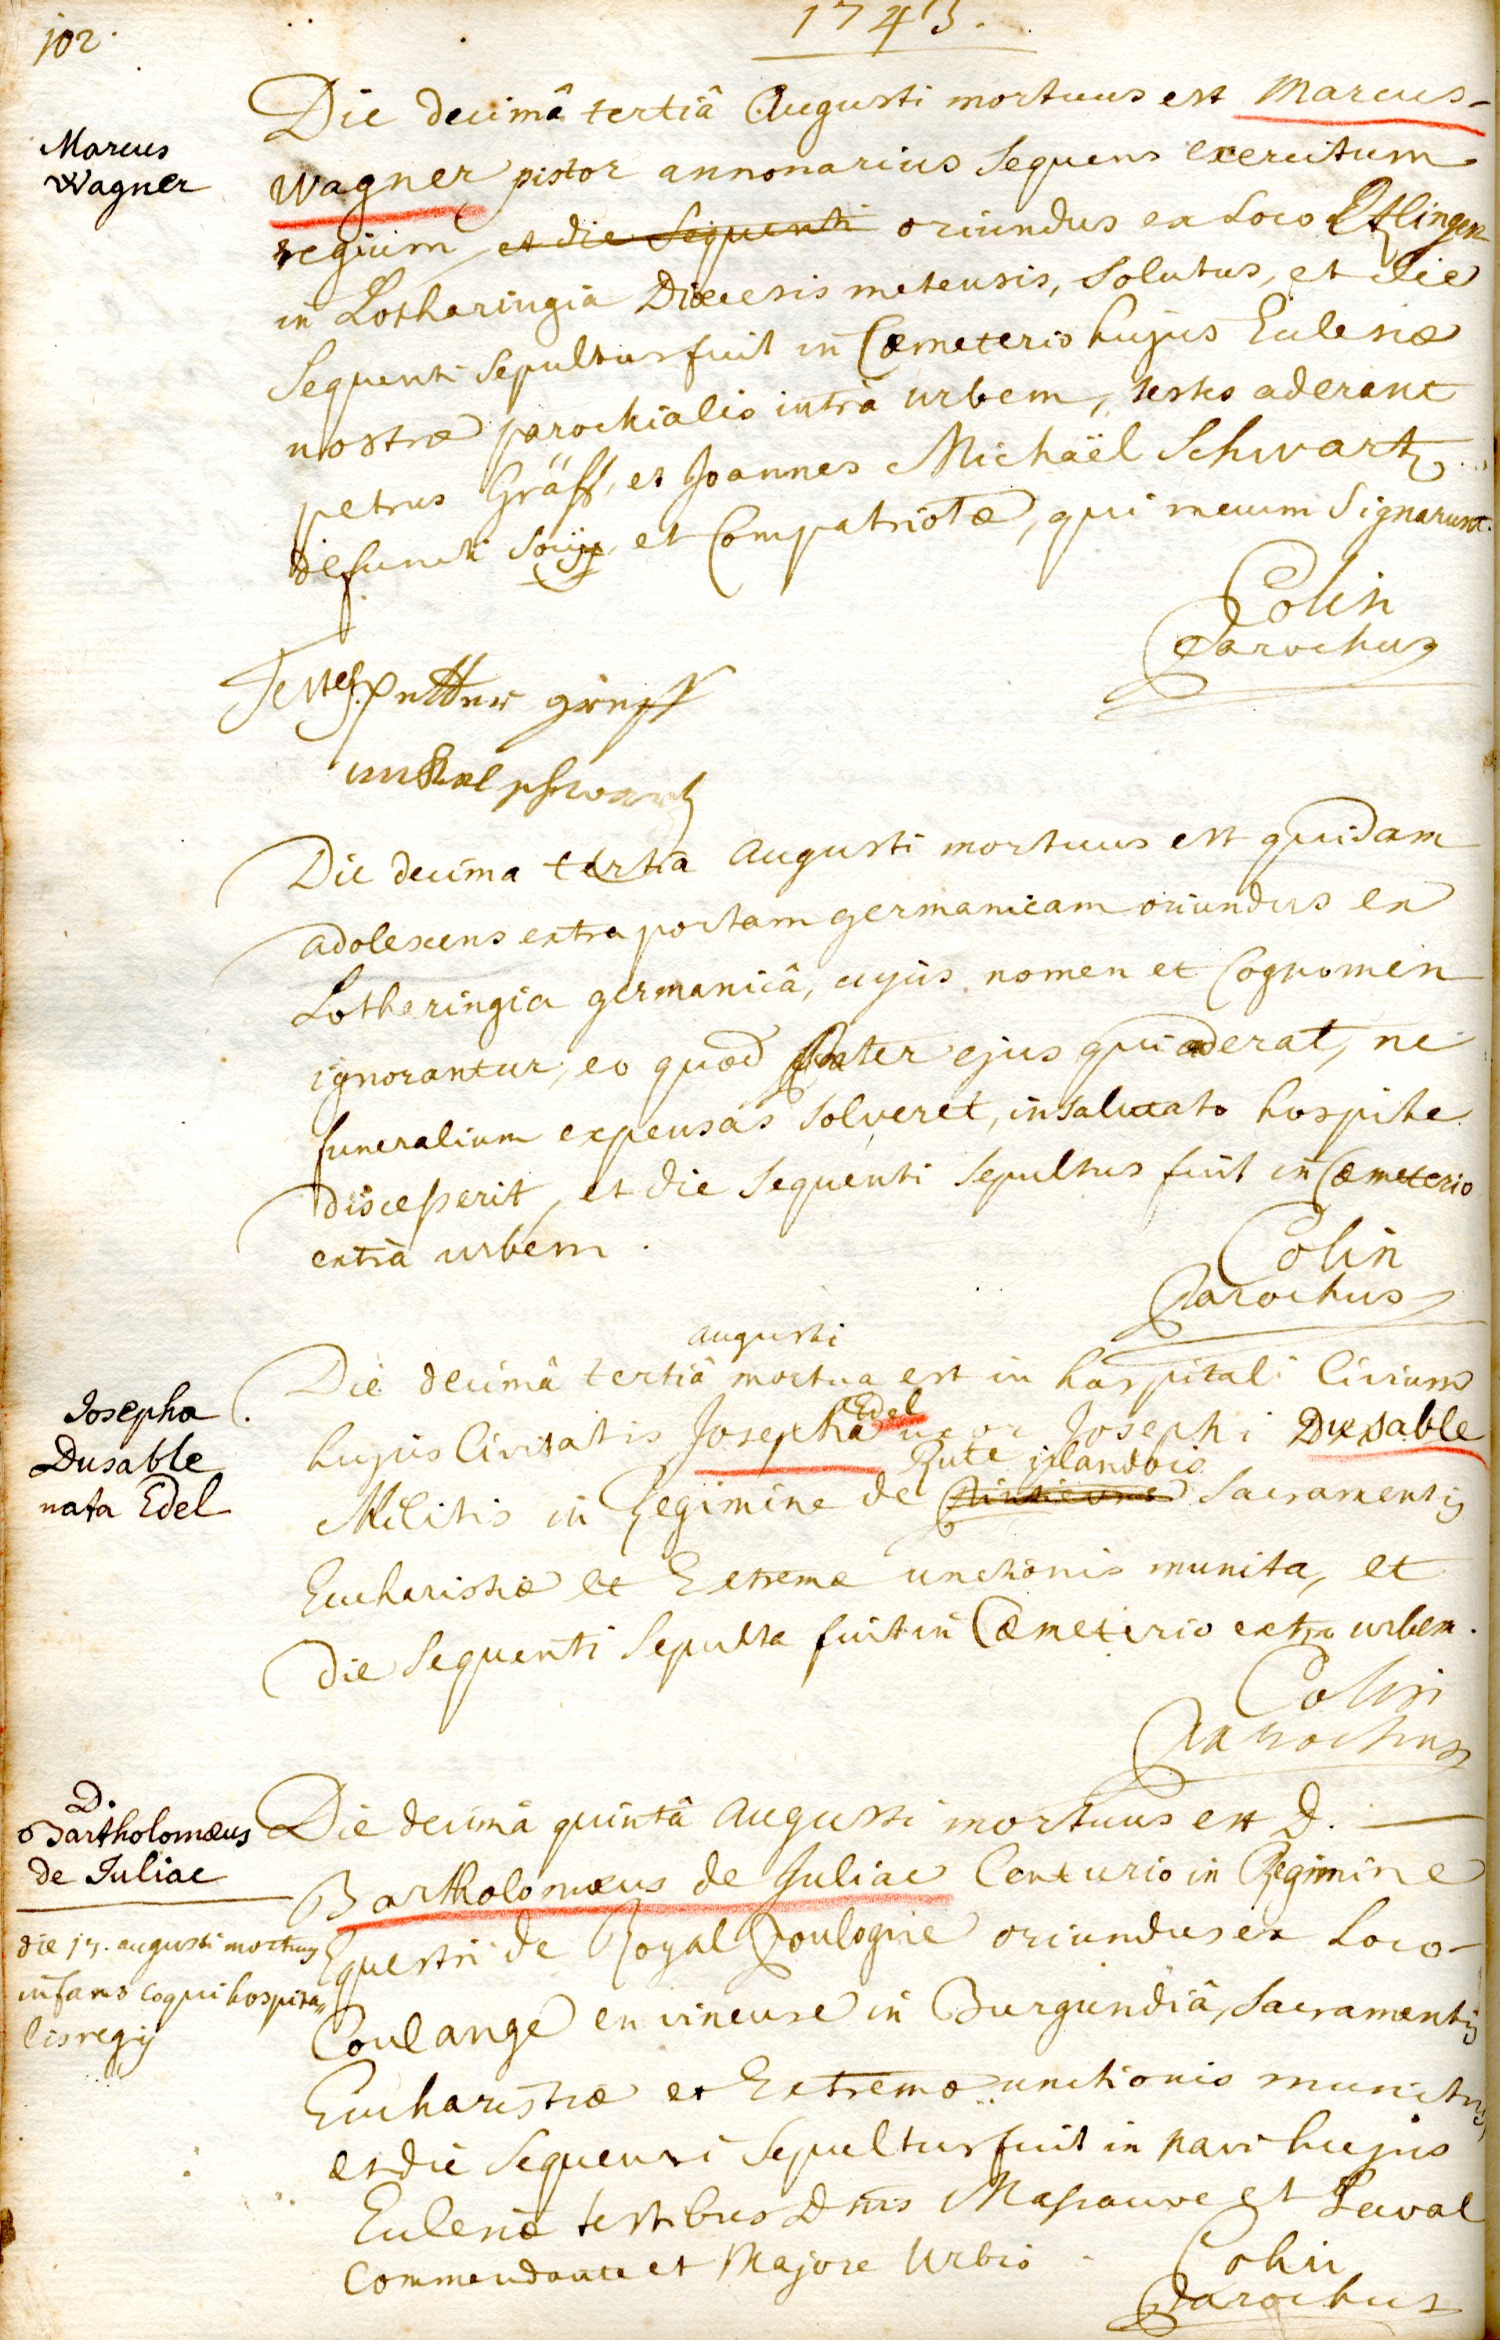 102.
1743.
Marcus
Wagner
Die decimâ tertiâ Augusti mortuus est Marcus-
Wagner pistor annonarius sequens exercitum
regium et die sequenti oriundus ex loco Etlingen
in Lotharingia Dioecesis metensis, solutus, et die
sequenti sepultus fuit in Cœmeterio hujus Ecclesiæ
nostræ parochialis intrà urbem, testes aderant
petrus Gräff, et Joannes Michaël Schwartz
defuncti socij, et Compatriotæ, qui mecum signarunt.
Colin
Parochus
Testes. Petter gräff
Schwartz
Die decima tertia Augusti mortuus est quidam
adolescens extra portam germanicam oriundus ex
Lotharingia germanicâ, cujus nomen et Cognomen
ignorantur, eo quod pater ejus qui aderat, ne
funeralium expensas solveret, insalutato hospite
discesserit, et die sequenti sepultus fuit in Cœmeterio
extrà urbem.
Colin
Parochus
Josepha
Dusable
nata Edel
augusti
Die decimâ tertiâ mortua est in hospitali Civium
Edel
hujus Civitatis Josepha uxor Josephi Dusable
Rute irlandois
Militis in Regimine de sacramentis
Eucharistiæ et Extremæ unctionis munita, et
die sequenti sepulta fuit in Cœmeterio extra urbem.
Colin
Parochus
D.
Bartholomæus
de Juliac
Die decimâ quintâ Augusti mortuus est D.
Bartholomæus de Juliac Centurio in Regimine
Equestri de Royal Poulogne oriundus ex Loco-
Coulange en vineuse in Burgundiâ, sacramentis
Eucharistiæ et Extremæ unctionis munitus,
et die sequenti sepultus fuit in navi hujus
Ecclesiæ testibus Dnis Massauve et Laval
Commendante et Majore Urbis
Colin
Parochus
die 15. augusti mortuus
infans coqui hospita-
lis regij